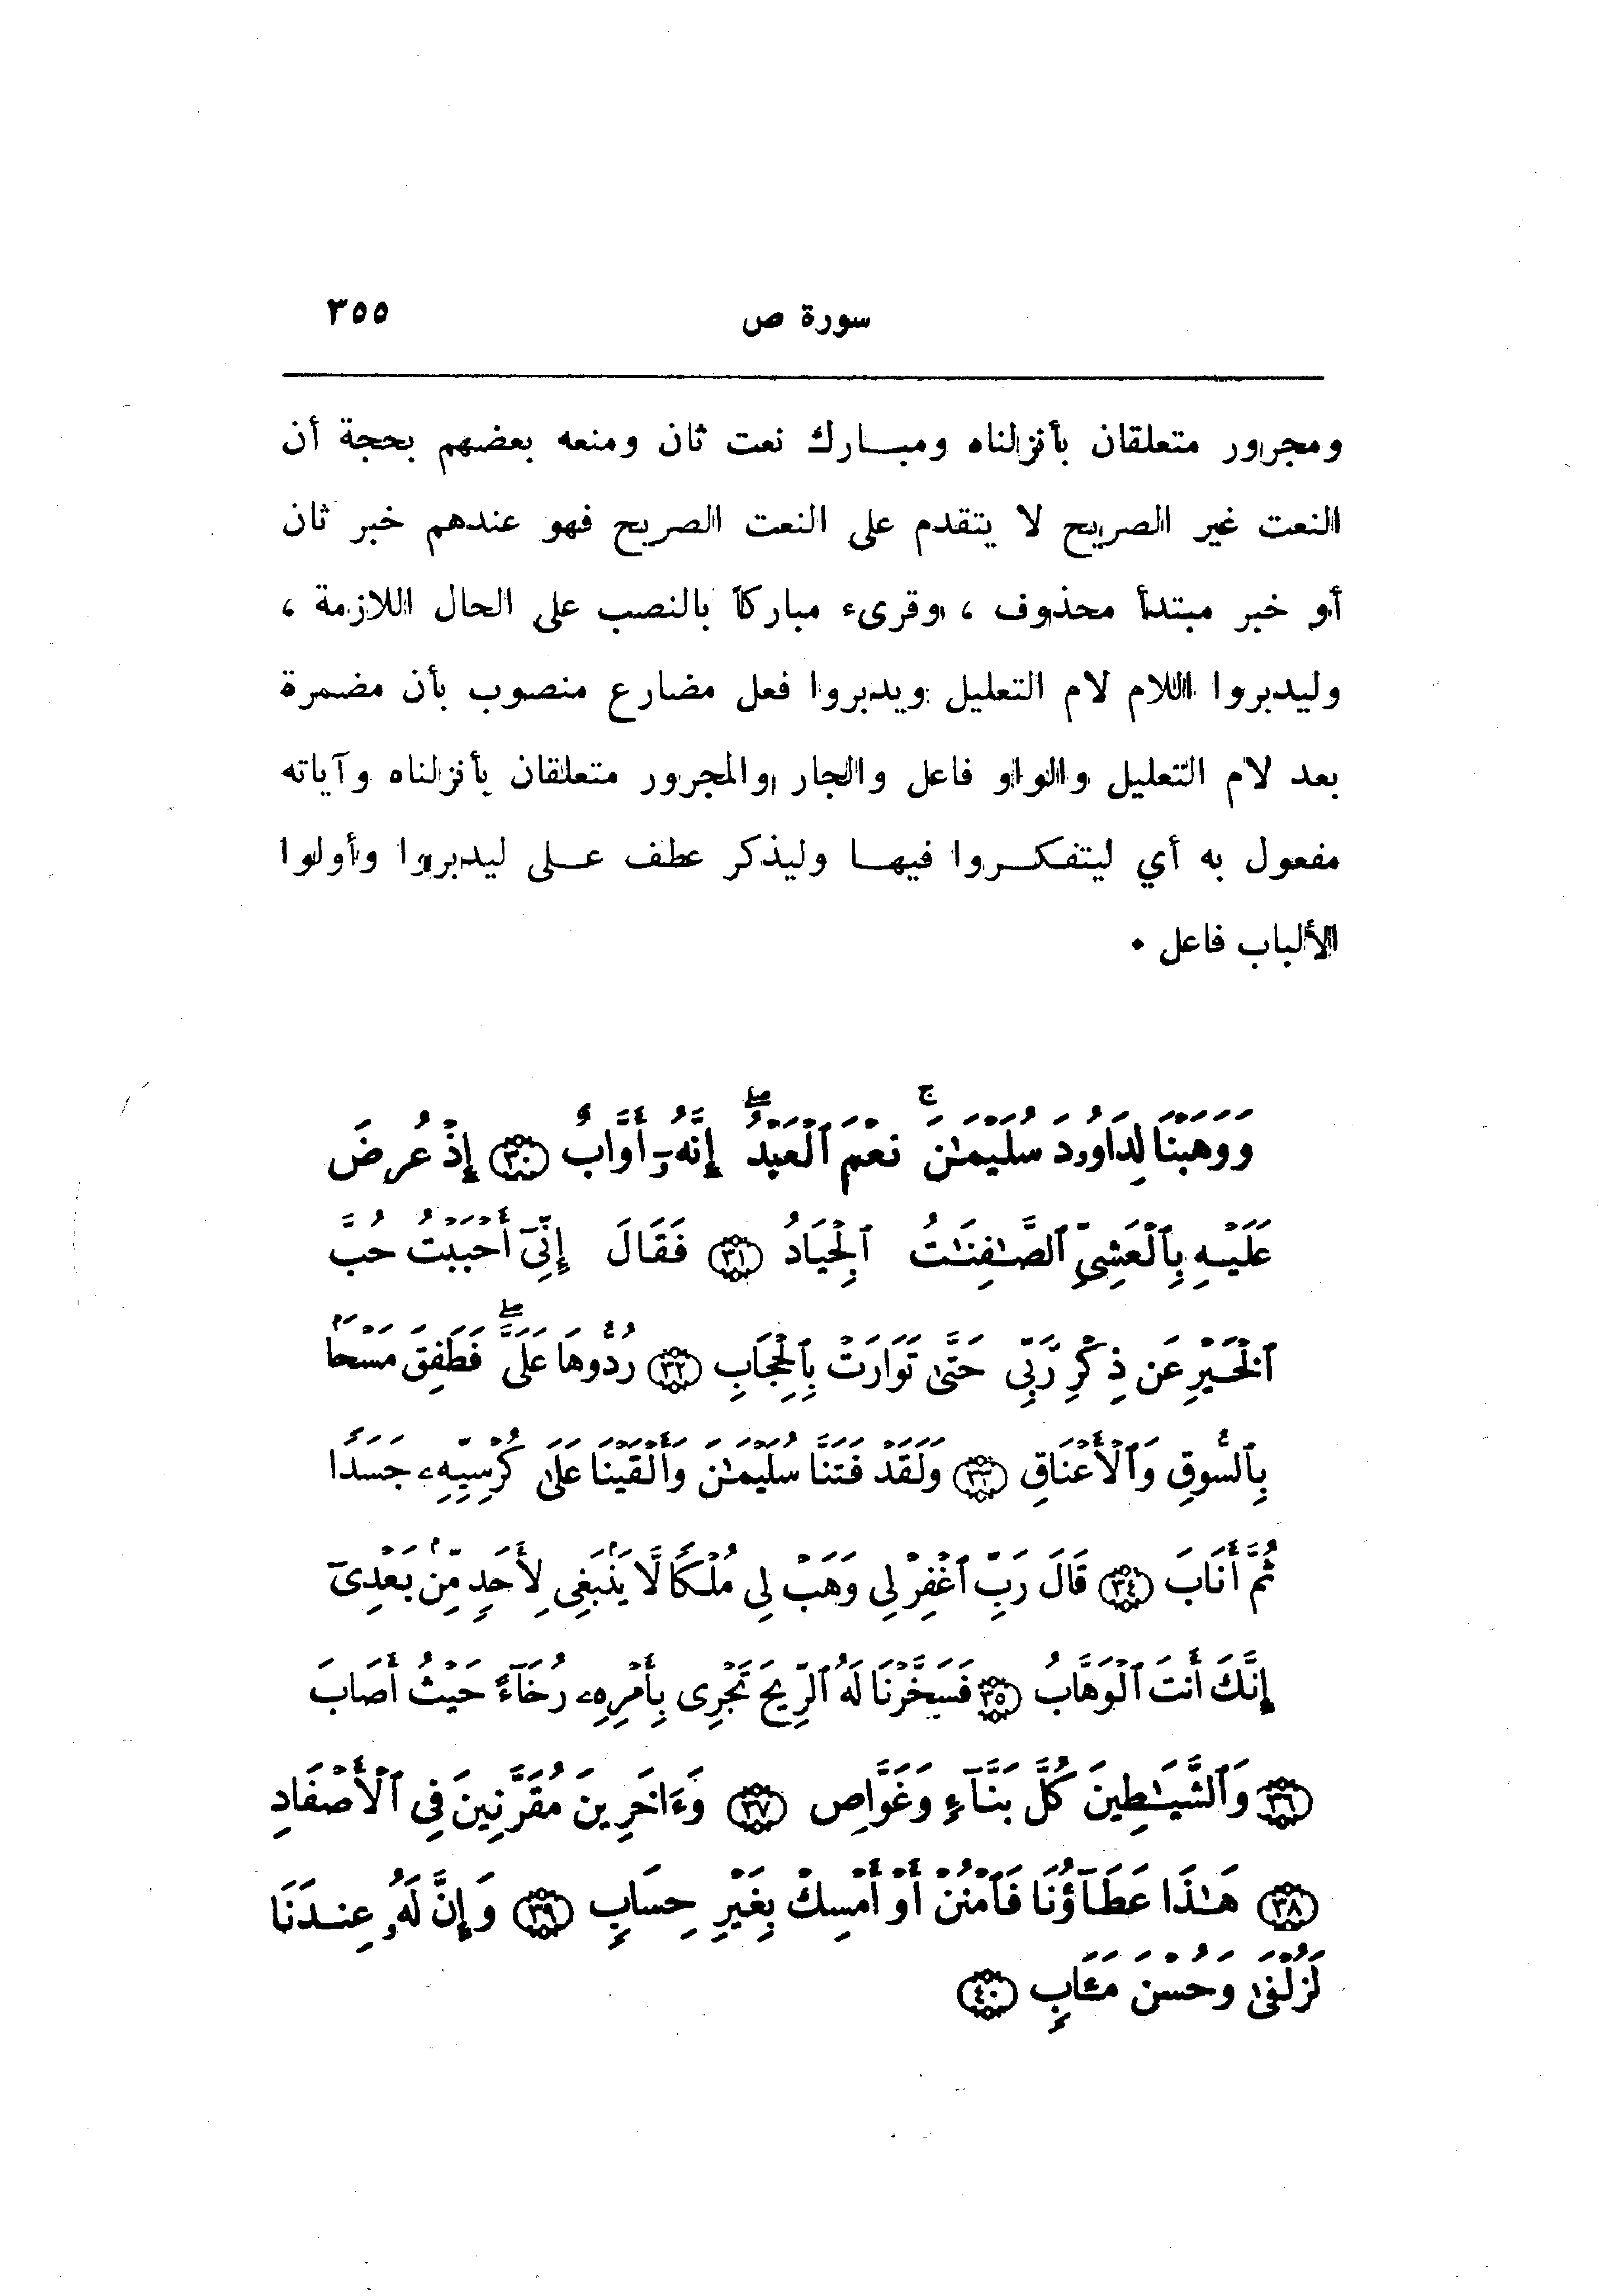 سورة ص ٣٥٥
ومجرور متعلقان بأنزلناه ومبـارك نعت ثان ومنعه بعضهم بحجة أن
النعت غير الصريح لا يتقدم على النعت الصريح فهو عندهم خبر ثان
أو خبر مبتدأ محذوف ، وقرىء مباركاً بالنصب على الحال اللازمة ،
وليدبروا اللام لام التعليل ويدبروا فعل مضارع منصوب بأن مضمرة
بعد لام التعليل والواو فاعل والجار والمجرور متعلقان بأنزلناه وآياته
مفعول به أي ليتفكـروا فيهـا وليذكر عطف عـلى ليدبروا وأولوا
الألباب فاعل ٠
وَوَهَبْنَا لِدَاوُۥدَ سُلَيْمَٰنَ ۚ نِعْمَ ٱلْعَبْدُ ۖ إِنَّهُۥٓ أَوَّابٌ ﴿٣٠﴾ إِذْ عُرِضَ
عَلَيْهِ بِٱلْعَشِىِّ ٱلصَّٰفِنَٰتُ ٱلْجِيَادُ ﴿٣١﴾ فَقَالَ إِنِّىٓ أَحْبَبْتُ حُبَّ
ٱلْخَيْرِ عَن ذِكْرِ رَبِّى حَتَّىٰ تَوَارَتْ بِٱلْحِجَابِ ﴿٣٢﴾ رُدُّوهَا عَلَىَّ ۖ فَطَفِقَ مَسْحًۢا
بِٱلسُّوقِ وَٱلْأَعْنَاقِ ﴿٣٣﴾ وَلَقَدْ فَتَنَّا سُلَيْمَٰنَ وَأَلْقَيْنَا عَلَىٰ كُرْسِيِّهِۦ جَسَدًا
ثُمَّ أَنَابَ ﴿٣٤﴾ قَالَ رَبِّ ٱغْفِرْ لِى وَهَبْ لِى مُلْكًا لَّا يَنۢبَغِى لِأَحَدٍ مِّنۢ بَعْدِىٓ
إِنَّكَ أَنتَ ٱلْوَهَّابُ ﴿٣٥﴾ فَسَخَّرْنَا لَهُ ٱلرِّيحَ تَجْرِى بِأَمْرِهِۦ رُخَآءً حَيْثُ أَصَابَ
﴿٣٦﴾ وَٱلشَّيَٰطِينَ كُلَّ بَنَّآءٍ وَغَوَّاصٍ ﴿٣٧﴾ وَءَاخَرِينَ مُقَرَّنِينَ فِى ٱلْأَصْفَادِ
﴿٣٨﴾ هَٰذَا عَطَآؤُنَا فَٱمْنُنْ أَوْ أَمْسِكْ بِغَيْرِ حِسَابٍ ﴿٣٩﴾ وَإِنَّ لَهُۥ عِندَنَا
لَزُلْفَىٰ وَحُسْنَ مَـَٔابٍ ﴿٤٠﴾